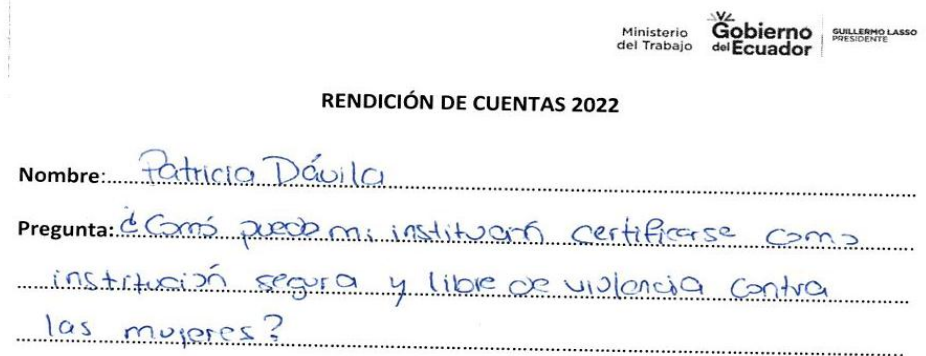 Ministerio
del Trabajo
Gobierno
del Ecuador
GUILLERMO LASSO
PRESIDENTE
RENDICIÓN DE CUENTAS 2022
Nombre: Patricia Dávila
Pregunta: ¿Comó puede mi institución certificarse como
institución segura y libre de violencia contra
las mujeres?